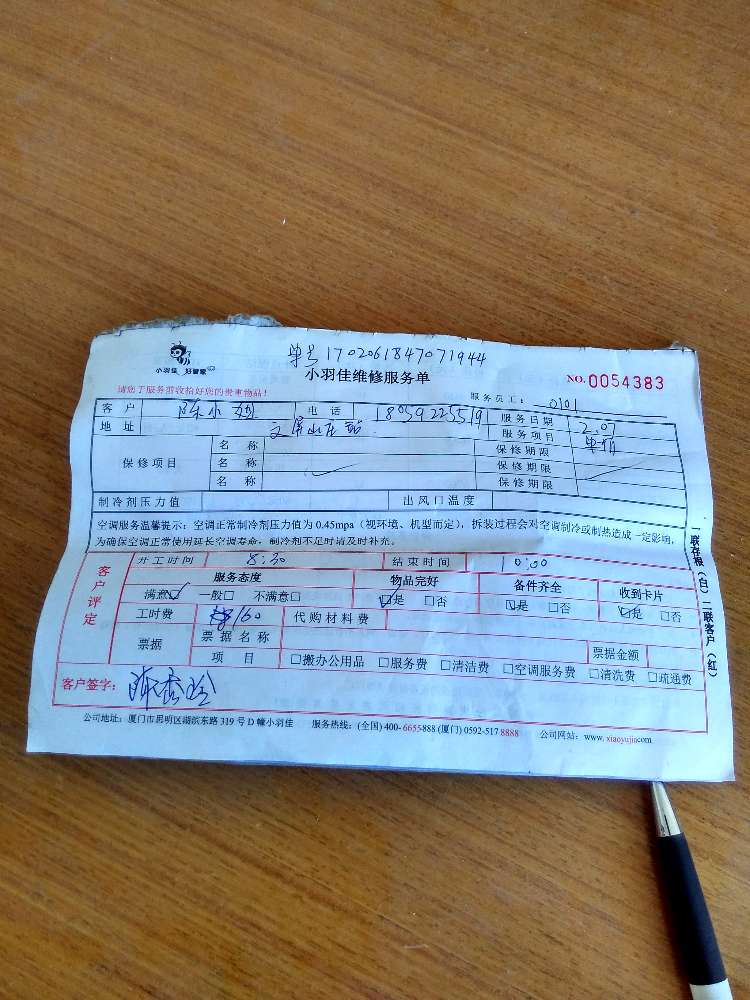 小羽佳 好管家
单号 1702061847071944
小羽佳维修服务单
NO. 0054383
请您于服务前收拾好您的贵重物品!
服务员工: 0101
客户 陈小姐 电话 18059225519 服务日期 2.07
地址 文屏山庄 服务项目
保修项目 名称 保修期限
名称 保修期限
名称 保修期限
制冷剂压力值 出风口温度
空调服务温馨提示:空调正常制冷剂压力值为 0.45mpa(视环境、机型而定),拆装过程会对空调制冷或制热造成一定影响,
为确保空调正常使用延长空调寿命,制冷剂不足时请及时补充。
客户评定
开工时间 8:30 结束时间 10:00
服务态度 物品完好 备件齐全 收到卡片
满意☑ 一般□ 不满意□ ☑是 □否 ☑是 □否 ☑是 □否
工时费 160 代购材料费
票据 票据名称 票据金额
项目 □搬办公用品 □服务费 □清洁费 □空调服务费 □清洗费 □疏通费
客户签字:
公司地址:厦门市思明区湖滨东路 319 号 D 幢小羽佳 服务热线:(全国) 400-6655888 (厦门) 0592-517 8888 公司网站:www.xiaoyujia.com
一联存根(白)二联客户(红)